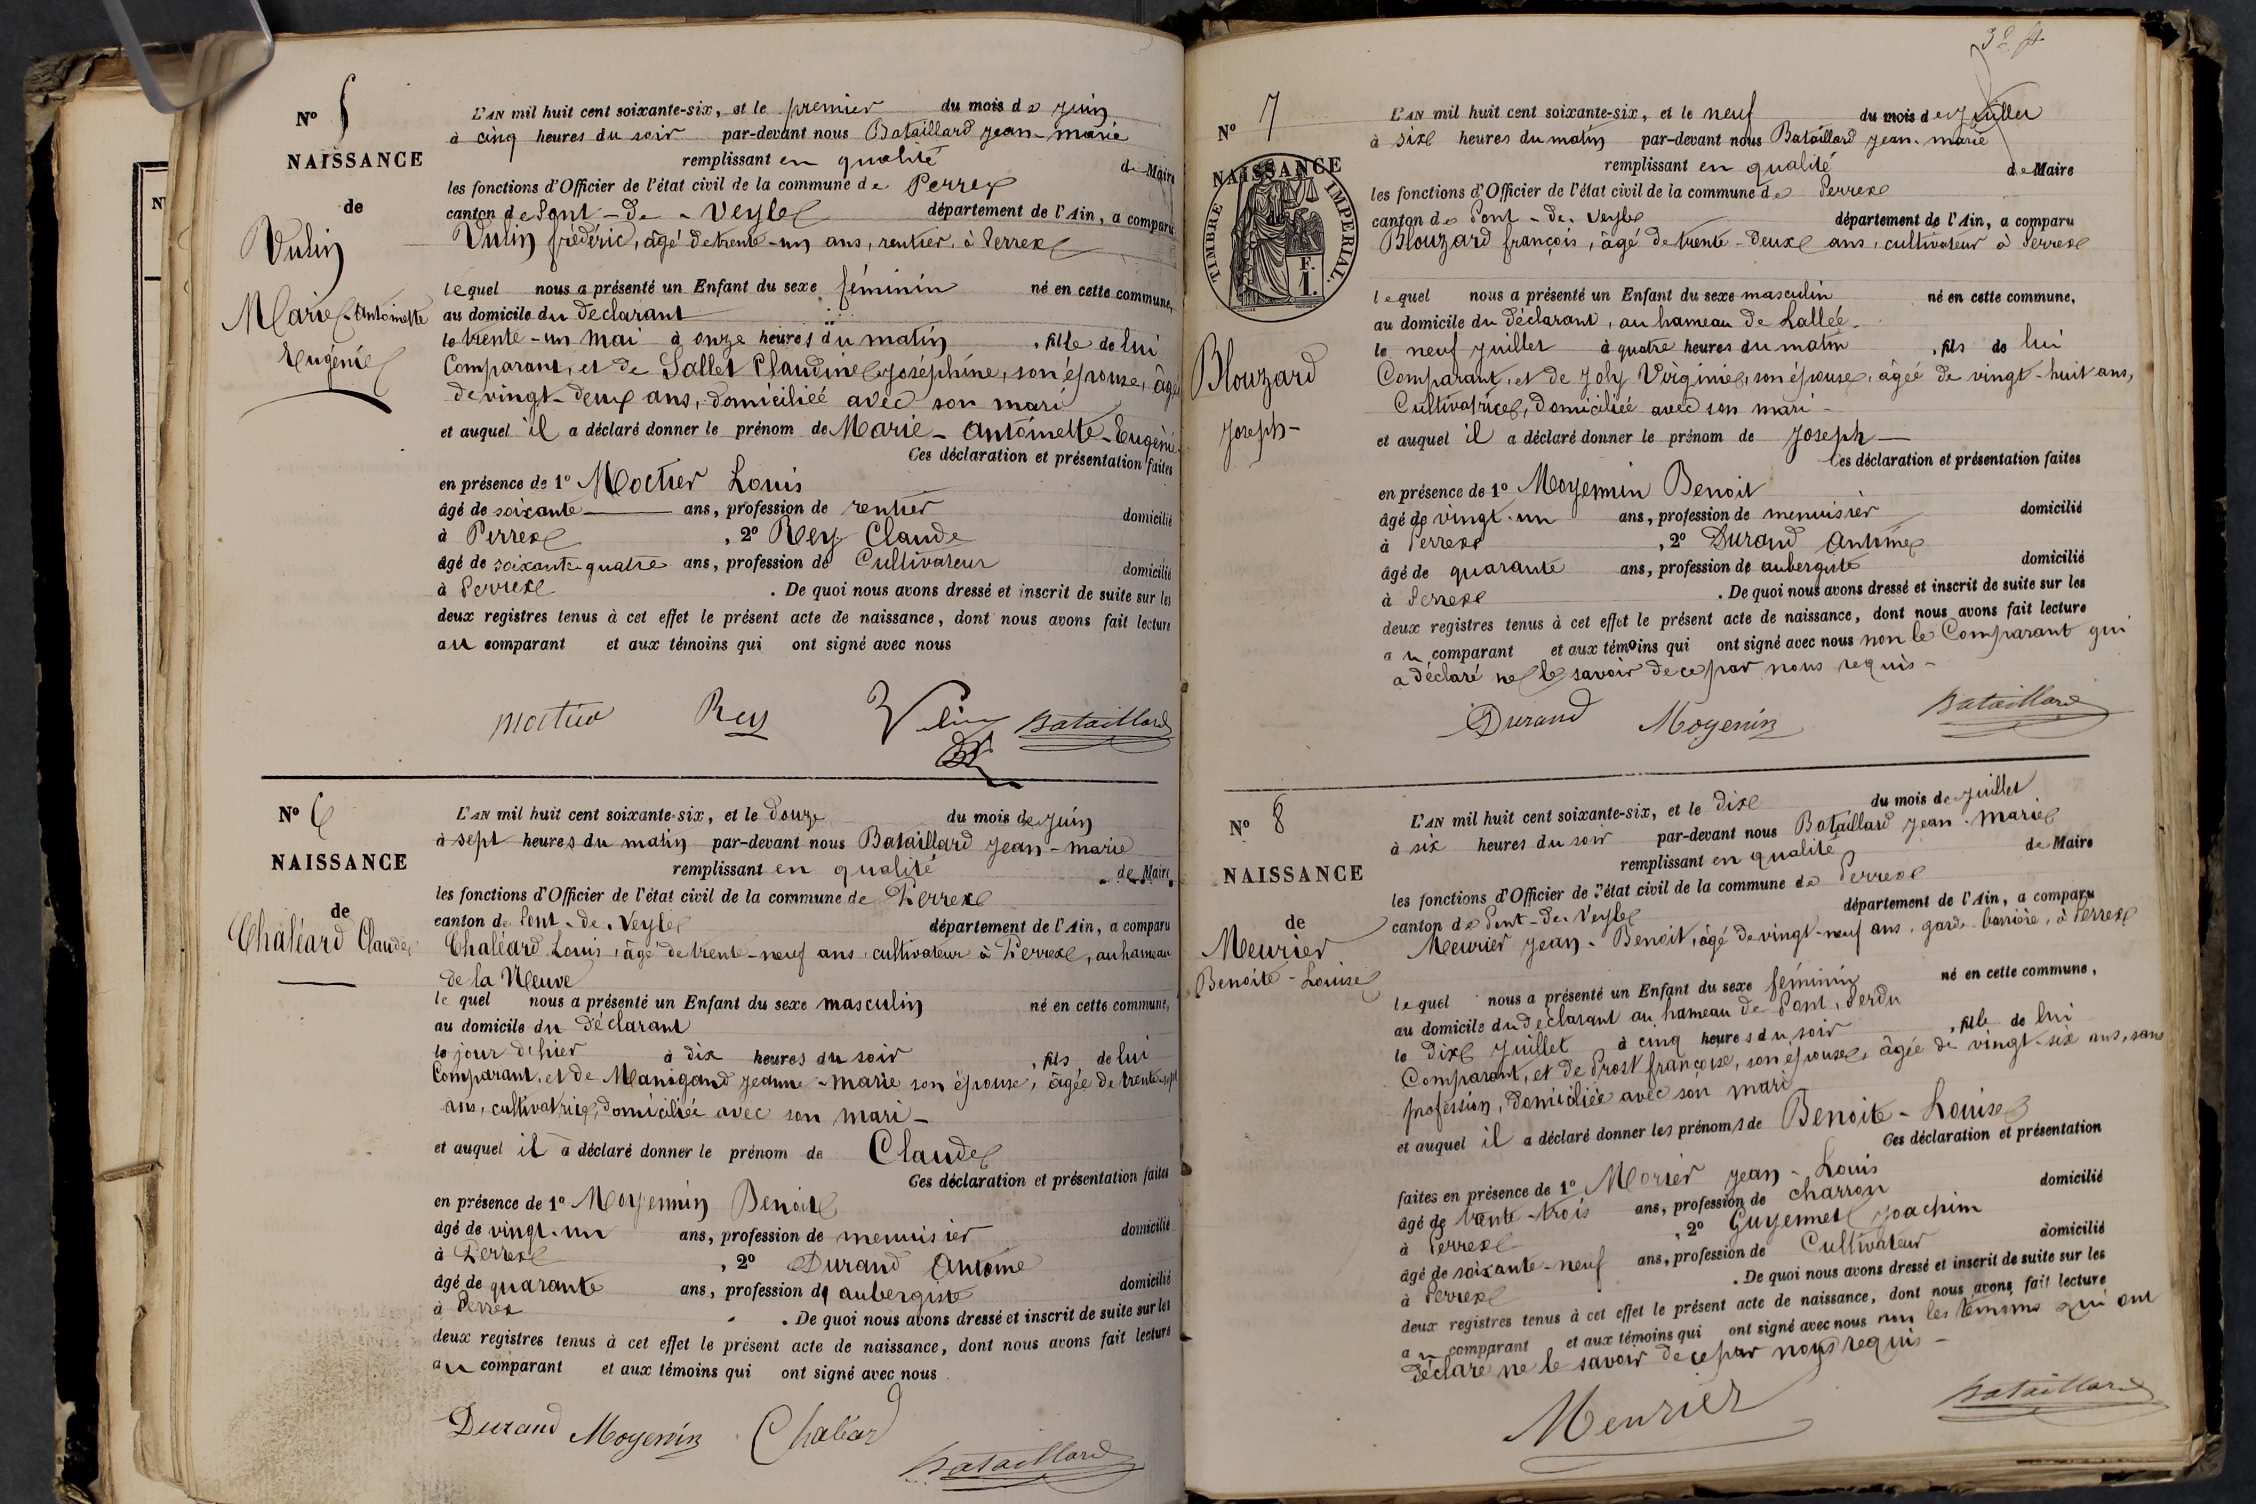 N° 5
NAISSANCE
de
Vulin
Marie-Antoinette
Eugénie
L'AN mil huit cent soixante-six, et le premier du mois de juin
à cinq heures du soir par-devant nous Bataillard jean-marie
remplissant en qualité de Maire
les fonctions d'Officier de l'état civil de la commune de Perrex
canton de Pont-de-Veyle département de l'Ain, a comparu
Vulin frédéric, âgé de trente-un ans, rentier, à Perrex
lequel nous a présenté un Enfant du sexe féminin né en cette commune,
au domicile du déclarant
le trente-un mai à onze heures du matin, fille de lui
Comparant, et de Sallet Claudine joséphine, son épouse, âgée
de vingt-deux ans, domiciliée avec son mari
et auquel il a déclaré donner le prénom de Marie-Antoinette-Eugénie
Ces déclaration et présentation faites
en présence de 1° Moctier Louis
âgé de soixante ans, profession de rentier domicilié
à Perrex, 2° Rey Claude
âgé de soixante quatre ans, profession de Cultivateur domicilié
à Perrex. De quoi nous avons dressé et inscrit de suite sur les
deux registres tenus à cet effet le présent acte de naissance, dont nous avons fait lecture
au comparant et aux témoins qui ont signé avec nous
Rey Vulin Bataillard
N° 6
NAISSANCE
de
Chaléard Claude
L'AN mil huit cent soixante-six, et le douze du mois de juin
à sept heures du matin par-devant nous Bataillard jean-marie
remplissant en qualité de Maire
les fonctions d'Officier de l'état civil de la commune de Perrex
canton de Pont-de-Veyle département de l'Ain, a comparu
Chaléard Louis, âgé de trente-neuf ans, cultivateur à Perrex, au hameau
de la Neuve
lequel nous a présenté un Enfant du sexe masculin né en cette commune,
au domicile du déclarant
le jour d'hier à dix heures du soir, fils de lui
Comparant, et de Manigand jeanne-marie son épouse, âgée de trente-sept
ans, cultivatrice, domiciliée avec son mari-
et auquel il a déclaré donner le prénom de Claude
Ces déclaration et présentation faites
en présence de 1° Moyemin Benoit
âgé de vingt-un ans, profession de menuisier domicilié
à Perrex, 2° Durand Antoine
âgé de quarante ans, profession de aubergiste domicilié
à Perrex. De quoi nous avons dressé et inscrit de suite sur les
deux registres tenus à cet effet le présent acte de naissance, dont nous avons fait lecture
au comparant et aux témoins qui ont signé avec nous
Durand Moyemin Chaléard
Bataillard
N° 7
NAISSANCE
TIMBRE IMPERIAL.
F.
1.
Blouzard
joseph-
L'AN mil huit cent soixante-six, et le neuf du mois de juillet
à six heures du matin par-devant nous Bataillard jean-marie
remplissant en qualité de Maire
les fonctions d'Officier de l'état civil de la commune de Perrex
canton de Pont-de-Veyle département de l'Ain, a comparu
Blouzard françois, âgé de trente-deux ans, cultivateur à Perrex
lequel nous a présenté un Enfant du sexe masculin né en cette commune,
au domicile du déclarant, au hameau de Lallée-
le neuf juillet à quatre heures du matin, fils de lui
Comparant, et de joly Virginie, son épouse, âgée de vingt-huit ans,
Cultivatrice, domiciliée avec son mari-
et auquel il a déclaré donner le prénom de joseph-
Ces déclaration et présentation faites
en présence de 1° Moyemin Benoit
âgé de vingt-un ans, profession de menuisier domicilié
à Perrex, 2° Durand Antoine
âgé de quarante ans, profession de aubergiste domicilié
à Perrex. De quoi nous avons dressé et inscrit de suite sur les
deux registres tenus à cet effet le présent acte de naissance, dont nous avons fait lecture
au comparant et aux témoins qui ont signé avec nous non le Comparant qui
a déclaré ne le savoir de ce par nous requis-
Durand Moyemin Bataillard
N° 8
NAISSANCE
de
Meurier
Benoite-Louise
L'AN mil huit cent soixante-six, et le dix du mois de juillet
à six heures du soir par-devant nous Bataillard jean-marie
remplissant en qualité de Maire
les fonctions d'Officier de l'état civil de la commune de Perrex
canton de Pont-de-Veyle département de l'Ain, a comparu
Meurier jean-Benoit, âgé de vingt-neuf ans, garde-barrière, à Perrex
lequel nous a présenté un Enfant du sexe féminin né en cette commune,
au domicile du déclarant au hameau de Pont, perdu
le dix juillet à cinq heures du soir, fille de lui
Comparant, et de Prost françoise, son épouse, âgée de vingt-six ans, sans
profession, domiciliée avec son mari
et auquel il a déclaré donner les prénoms de Benoite-Louise
Ces déclaration et présentation
faites en présence de 1° Morier jean-Louis
âgé de trente-trois ans, profession de charron domicilié
à Perrex, 2° Guyennet joachim
âgé de soixante-neuf ans, profession de Cultivateur domicilié
à Perrex. De quoi nous avons dressé et inscrit de suite sur les
deux registres tenus à cet effet le présent acte de naissance, dont nous avons fait lecture
au comparant et aux témoins qui ont signé avec nous non les témoins qui ont
déclaré ne le savoir de ce par nous requis-
Meurier Bataillard